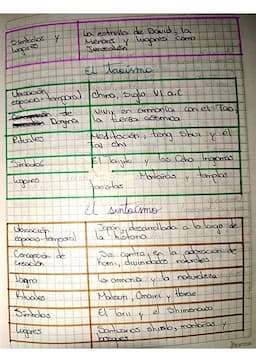 Símbolos y lugares
La estrella de David, la Menora y lugares como Jerusalén
El taoísmo
Ubicación espacio-temporal
China, siglo VI a.C
Dogma
Vivir en armonía con el Tao la fuerza cósmica
Rituales
Meditación, feng shui y el Tai chi
Símbolos
El Yin y los Ocho trigramas
Lugares
Montañas y templos taoístas
El sintoísmo
Ubicación espacio-temporal
Japón, desarrollado a lo largo de la historia
Concepción de creación
Se centra en la adoración de Kami, divinidades naturales
Dogma
La armonía y la naturaleza
Rituales
Matsuri, Omairi y Harae
Símbolos
El torii y el Shimenawa
Lugares
Santuarios shinto, montañas y bosques